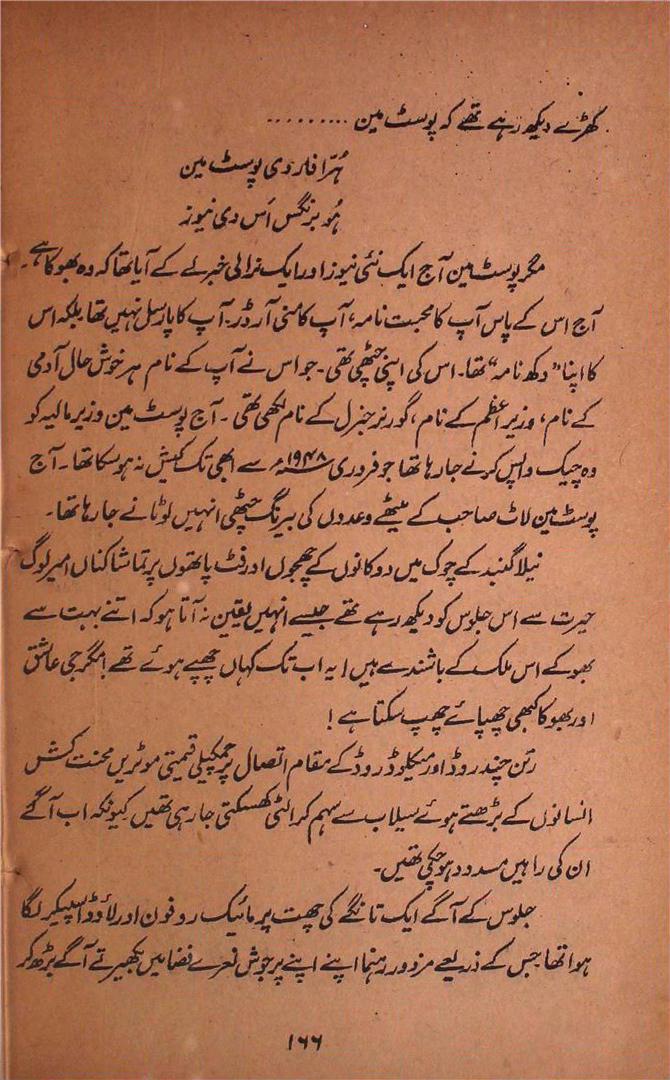 کھڑے دیکھ رہے تھے کہ پوسٹ مین .........
ہُرّا فار دی پوسٹ مین
ہُو برنگس اَس دی نیوز
مگر پوسٹ مین آج ایک نئی نیوز اور ایک نرالی خبر لے کے آیا تھا کہ وہ بھوکا ہے۔
آج اس کے پاس آپ کا محبت نامہ، آپ کا منی آرڈر۔ آپ کا پارسل نہیں تھا بلکہ اس
کا اپنا "دکھ نامہ" تھا۔ اس کی اپنی چٹھی تھی۔ جو اس نے آپ کے نام ہر خوش حال آدمی
کے نام، وزیر اعظم کے نام، گورنر جنرل کے نام لکھی تھی۔ آج پوسٹ مین وزیر مالیہ کو
وہ چیک واپس کرنے جا رہا تھا جو فروری ۱۹۴۸ء سے ابھی تک کیش نہ ہو سکا تھا۔ آج
پوسٹ مین لاٹ صاحب کے میٹھے وعدوں کی بیرنگ چٹھی انہیں لوٹانے جا رہا تھا۔
نیلا گنبد کے چوک میں دوکانوں کے چھجوں اور فٹ پاتھوں پر تماشا کناں امیر لوگ
حیرت سے اس جلوس کو دیکھ رہے تھے جیسے انہیں یقین نہ آتا ہو کہ اتنے بہت سے
بھوکے اس ملک کے باشندے ہیں! یہ اب تک کہاں چھپے ہوئے تھے! مگر جی عاشق
اور بھوکا کبھی چھپائے چھپ سکتا ہے!
رتن چند روڈ اور میکلوڈ روڈ کے مقام اتصال پر چمکیلی قیمتی موٹریں محنت کش
انسانوں کے بڑھتے ہوئے سیلاب سے سہم کر الٹی کھسکتی جا رہی تھیں کیونکہ اب آگے
ان کی راہیں مسدود ہو چکی تھیں۔
جلوس کے آگے ایک تانگے کی چھت پر مائیک روفون اور لاؤڈ اسپیکر لگا
ہوا تھا جس کے ذریعے مزدور رہنما اپنے اپنے پر جوش نعرے فضا میں بکھیرتے آگے بڑھ کر
۱۶۶